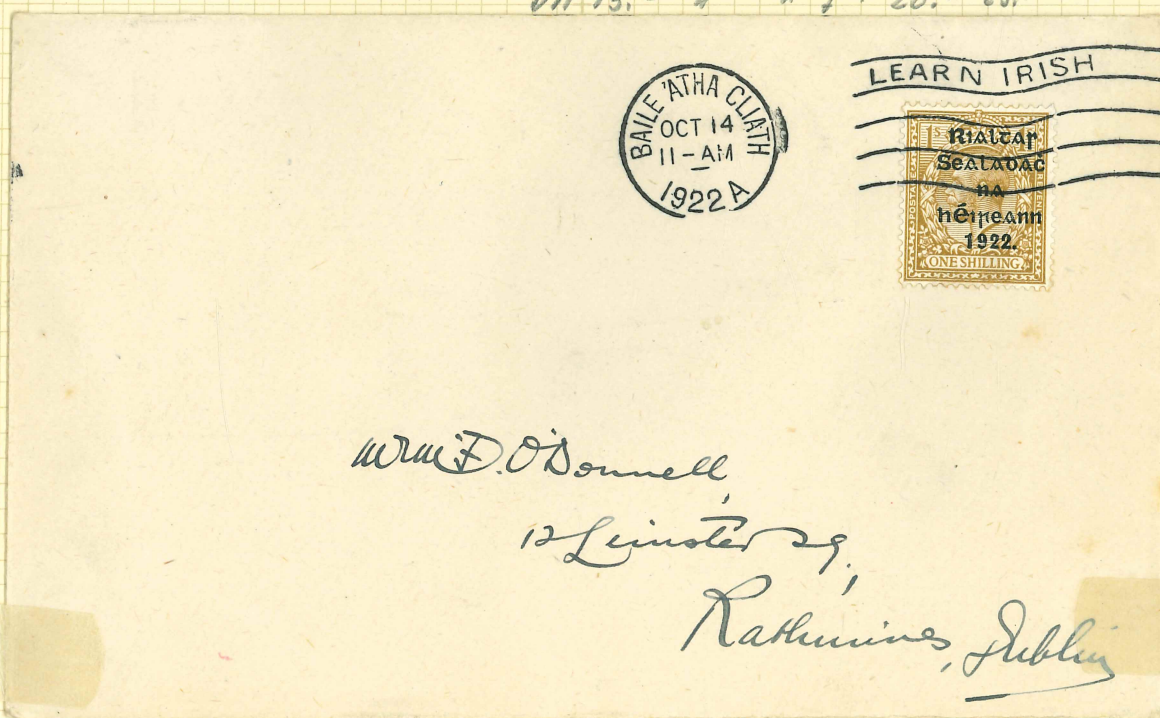 LEARN IRISH
BAILE 'ATHA CLIATH
OCT 14
11-AM
1922 A
1S
Rialtas
Sealadaċ
na
hÉireann
1922.
ONE SHILLING.
O'Donnell,
12 Leinster Sq,
Rathmines, Dublin